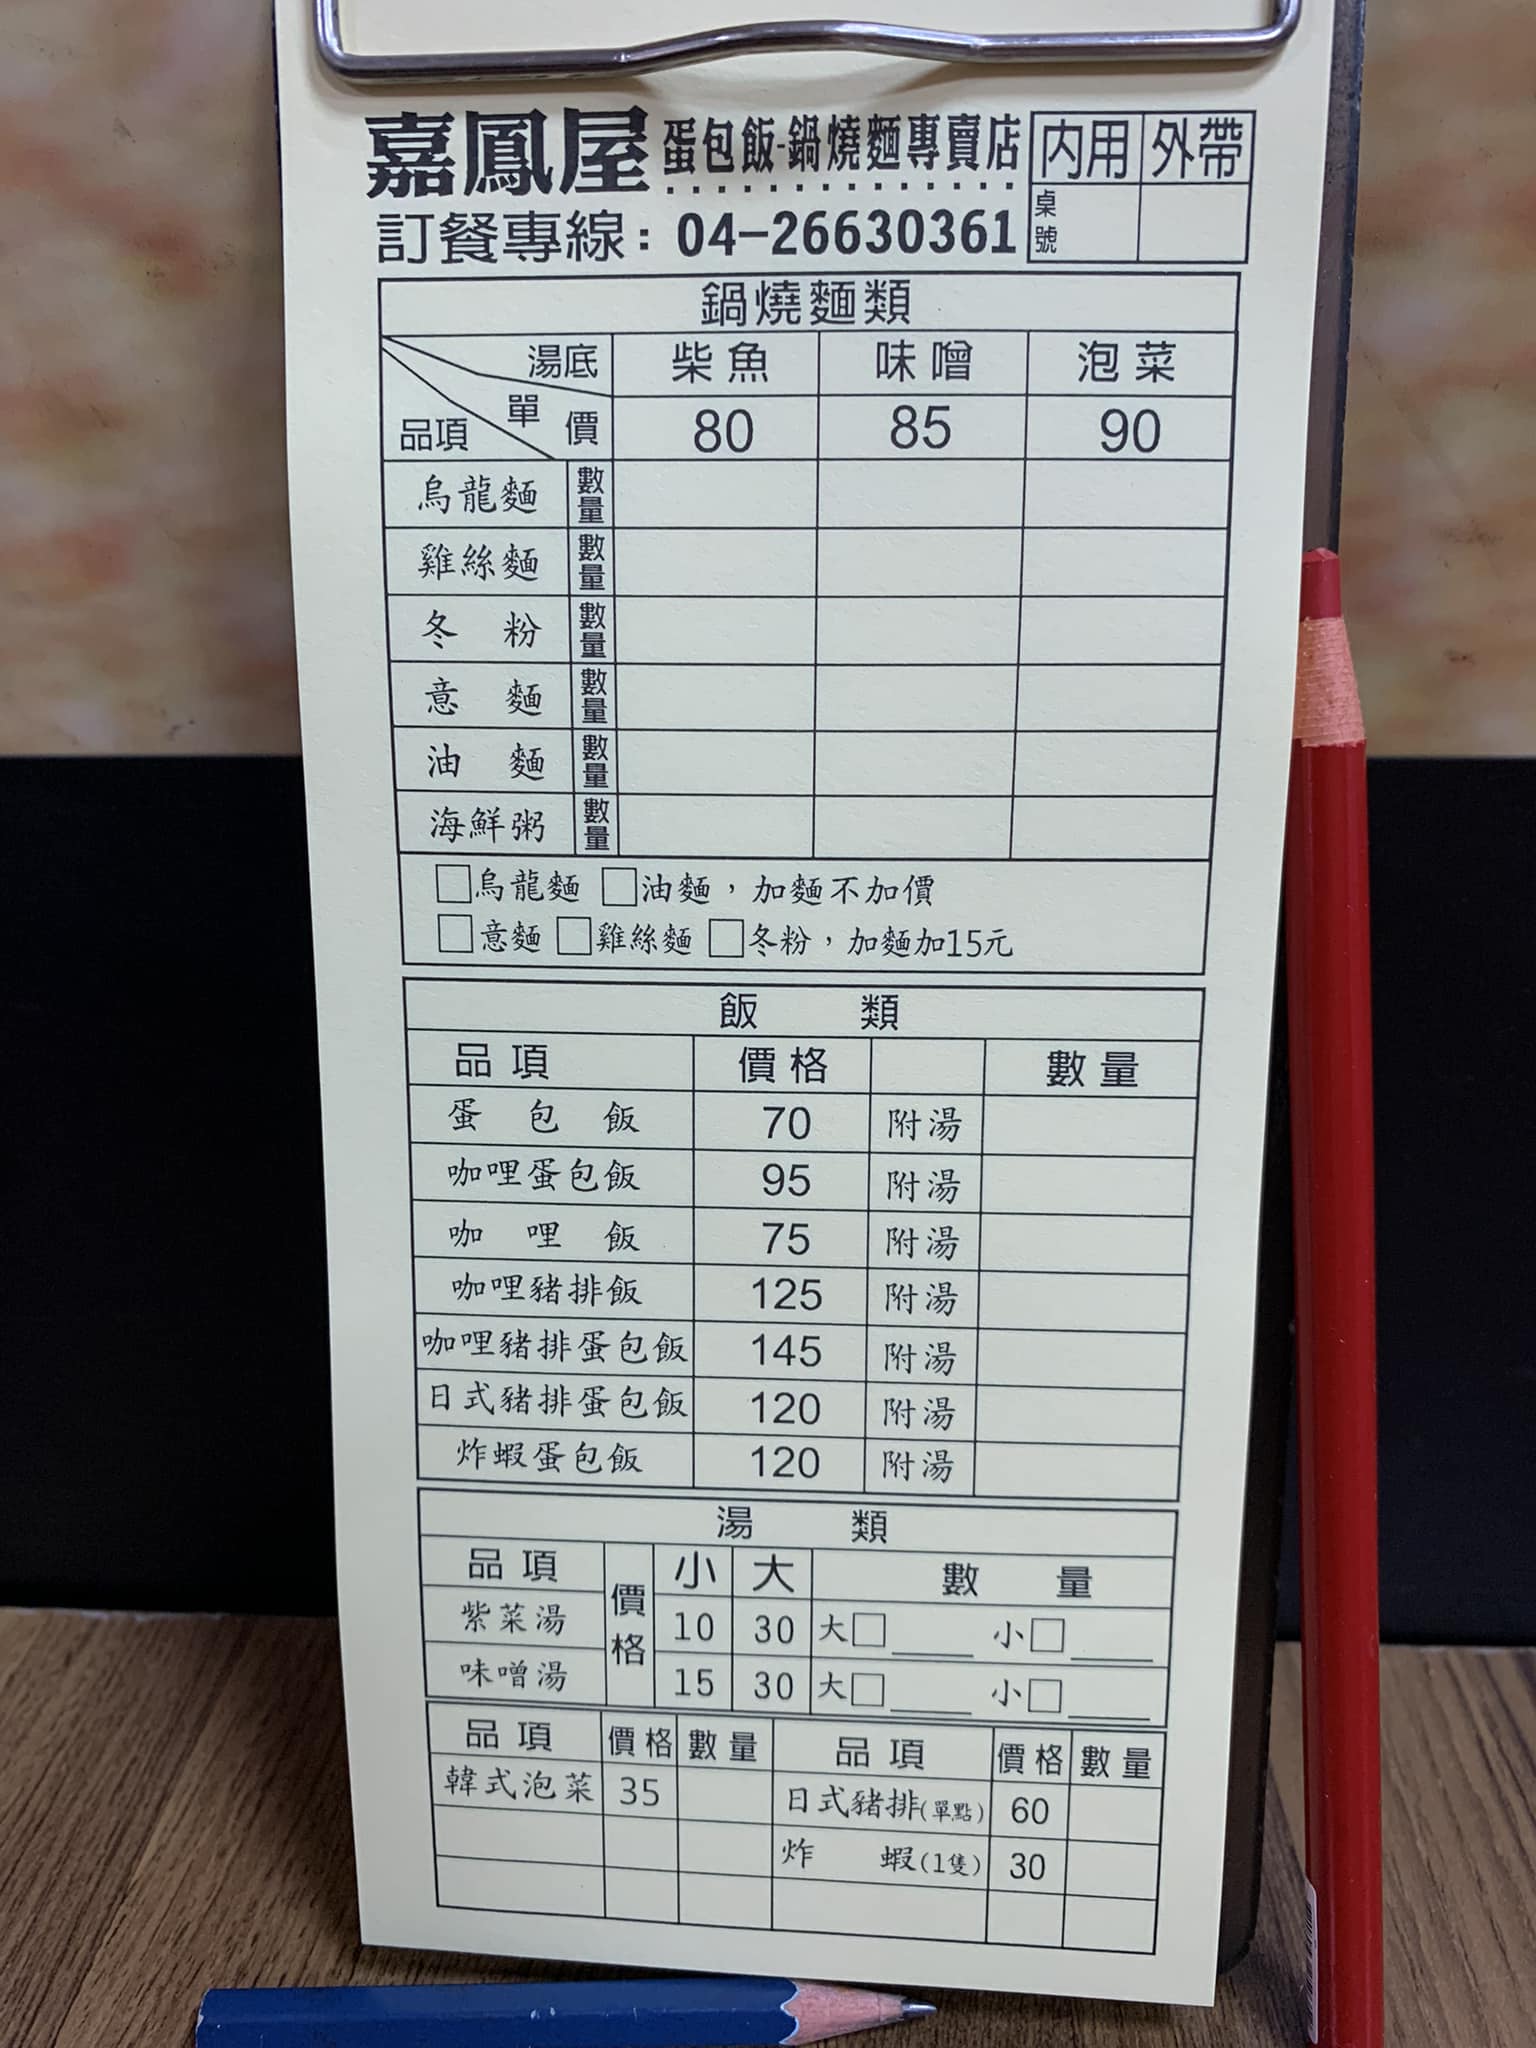 嘉鳳屋 蛋包飯-鍋燒麵專賣店 內用 外帶
訂餐專線：04-26630361 桌號
鍋燒麵類
湯底 柴魚 味噌 泡菜
品項 單價 80 85 90
烏龍麵 數量
雞絲麵 數量
冬粉 數量
意麵 數量
油麵 數量
海鮮粥 數量
□烏龍麵 □油麵，加麵不加價
□意麵 □雞絲麵 □冬粉，加麵加15元
飯類
品項 價格 數量
蛋包飯 70 附湯
咖哩蛋包飯 95 附湯
咖哩飯 75 附湯
咖哩豬排飯 125 附湯
咖哩豬排蛋包飯 145 附湯
日式豬排蛋包飯 120 附湯
炸蝦蛋包飯 120 附湯
湯類
品項 價格 小 大 數量
紫菜湯 10 30 大□____ 小□____
味噌湯 15 30 大□____ 小□____
品項 價格 數量 品項 價格 數量
韓式泡菜 35 日式豬排(單點) 60
炸蝦(1隻) 30